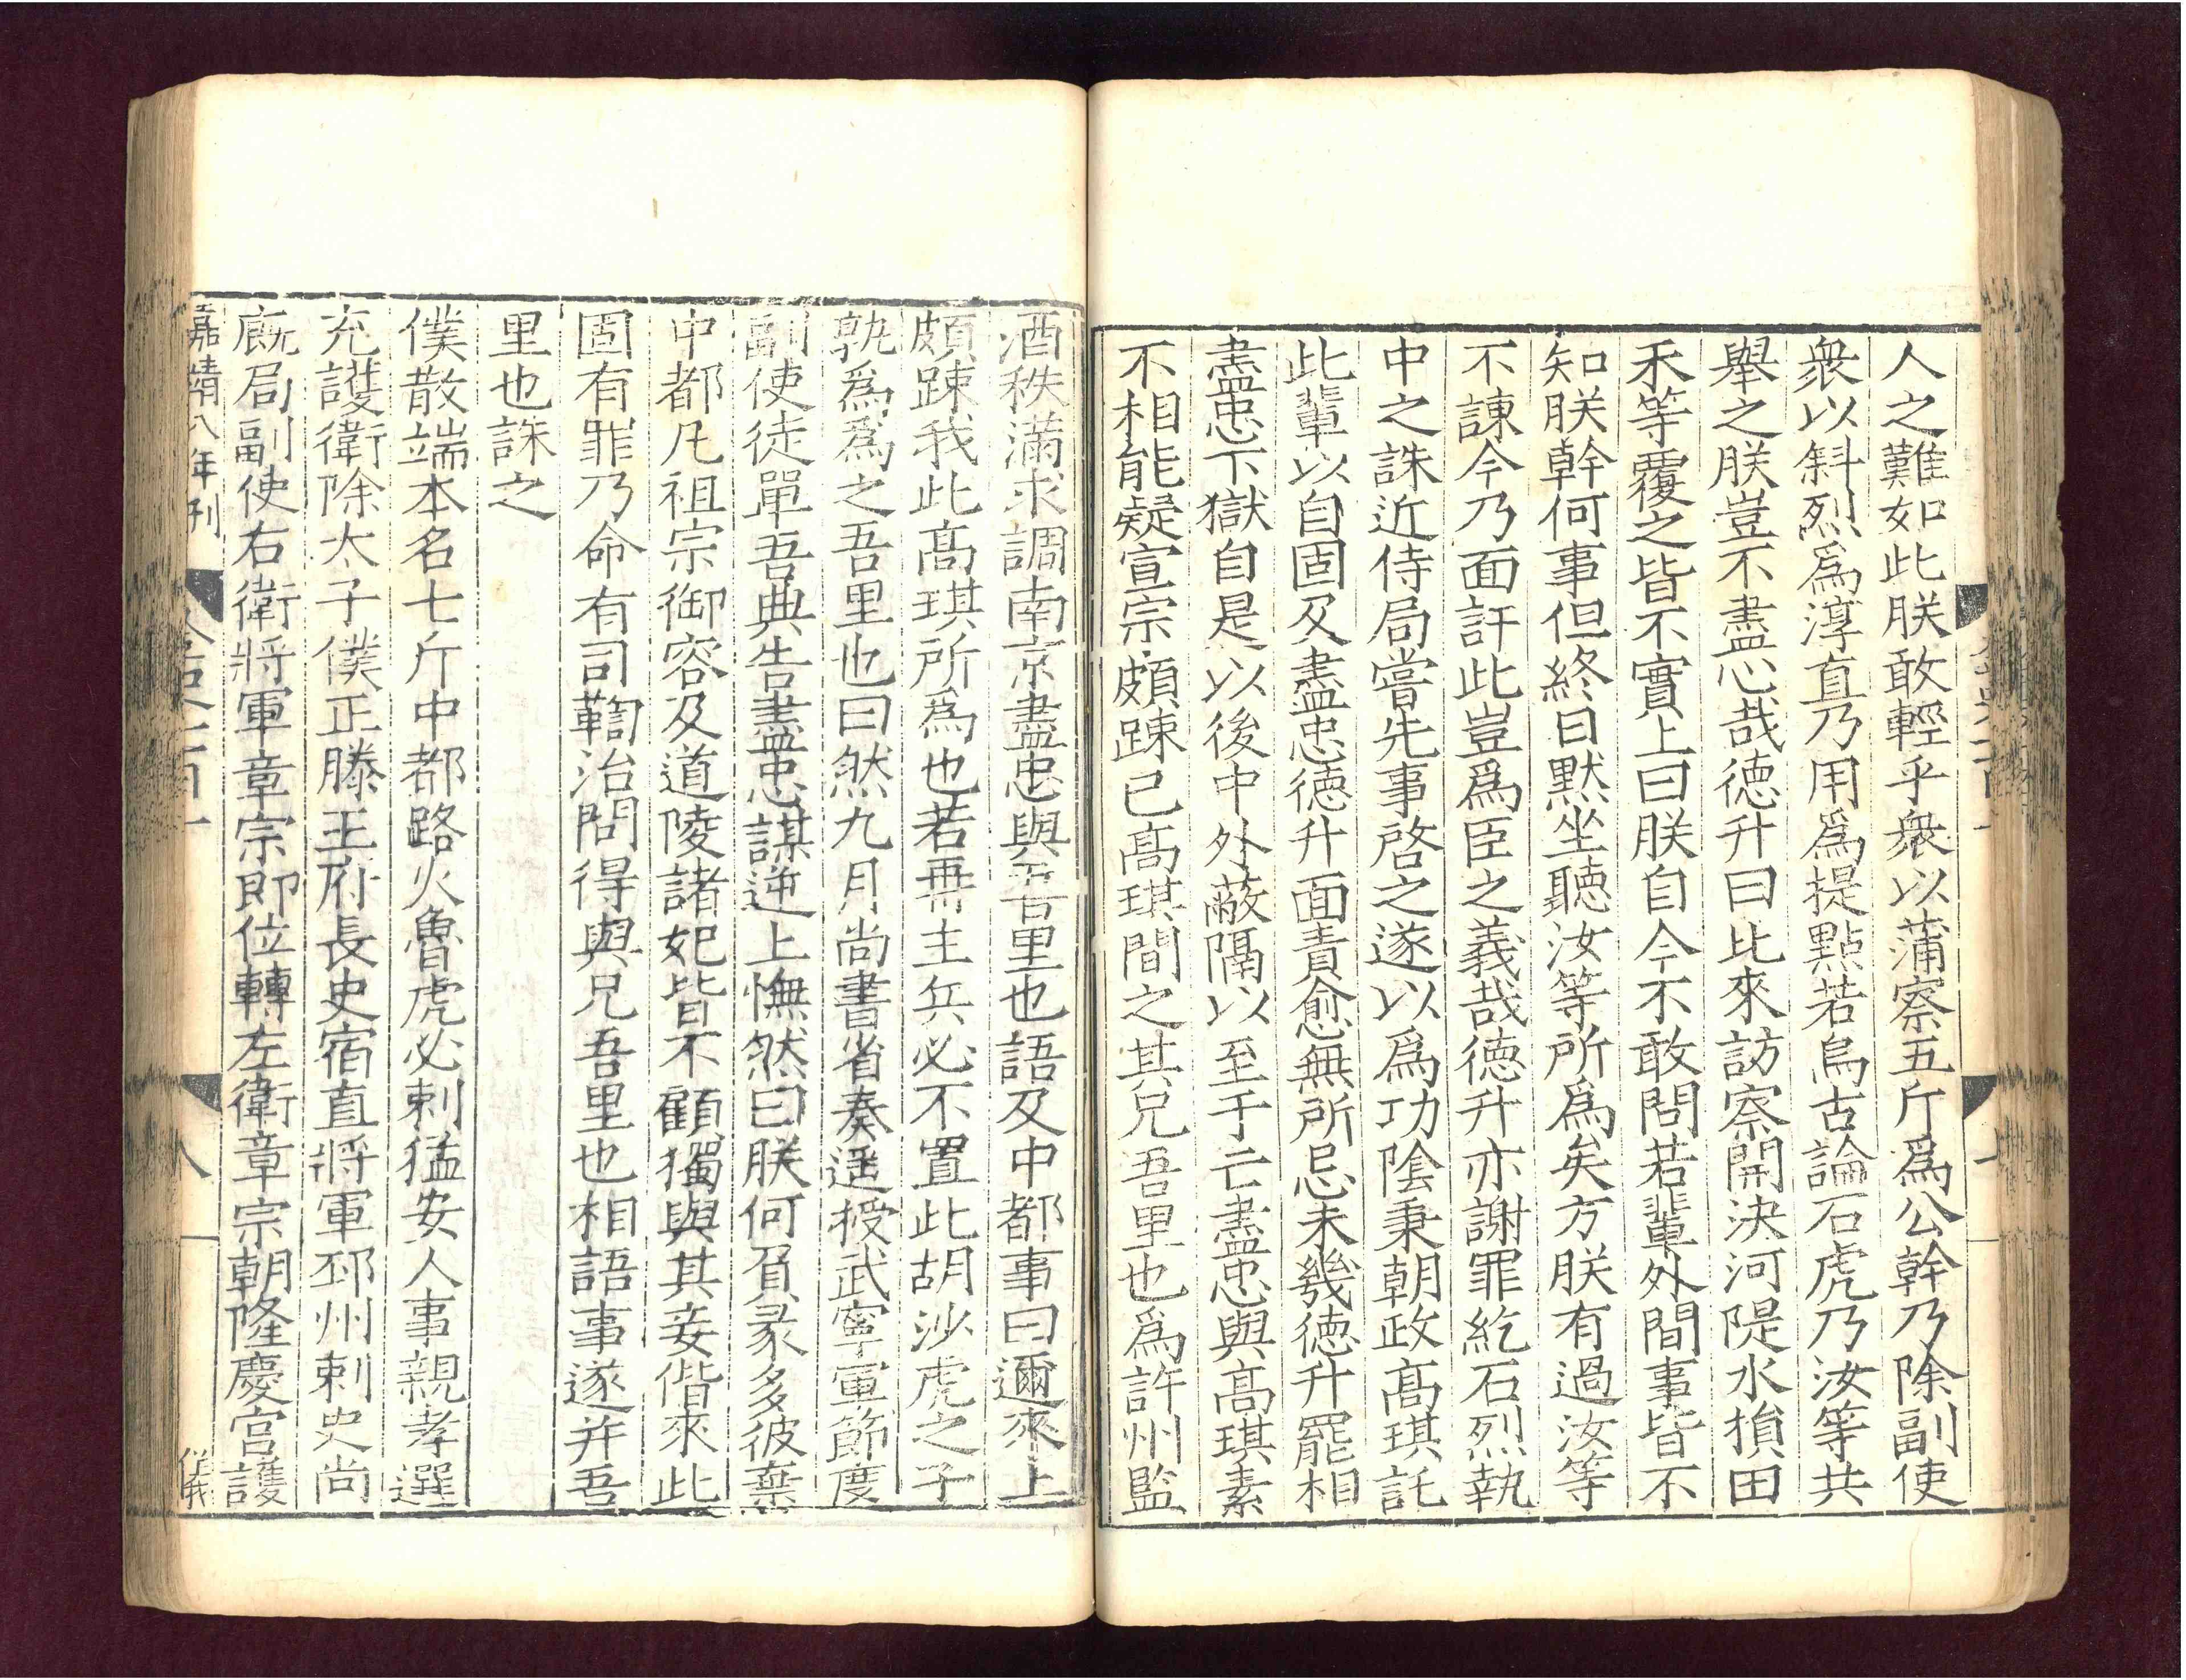 人之難如此朕敢輕乎衆以蒲察五斤爲公幹乃除副使
衆以斜烈爲淳直乃用爲提點若烏古論石虎乃汝等共
舉之朕豈不盡心哉德升曰比來訪察開決河隄水損田
禾等覆之皆不實上曰朕自今不敢問若輩外間事皆不
知朕幹何事但終日默坐聽汝等所爲矣方朕有過汝等
不諫今乃面訐此豈爲臣之義哉德升亦謝罪紇石烈執
中之誅近侍局嘗先事啓之遂以爲功陰秉朝政高琪託
此輩以自固及盡忠德升面責愈無所忌未幾德升罷相
盡忠下獄自是以後中外蔽隔以至于亡盡忠與高琪素
不相能疑宣宗頗踈己高琪間之其兄吾里也爲許州監
酒秩滿求調南京盡忠與吾里也語及中都事曰邇來上
頗踈我此高琪所爲也若再主兵必不置此胡沙虎之子
孰爲爲之吾里也曰然九月尚書省奏遥授武寧軍節度
副使徒單吾典告盡忠謀逆上憮然曰朕何負彖多彼棄
中都凡祖宗御容及道陵諸妃皆不顧獨與其妾偕來此
固有罪乃命有司鞫治問得與兄吾里也相語事遂并吾
里也誅之
僕散端本名七斤中都路火魯虎必剌猛安人事親孝選
充護衛除太子僕正滕王府長史宿直將軍邳州刺史尚
廐局副使右衛將軍章宗即位轉左衛章宗朝隆慶宮護
嘉靖八年刊
金史一百一
八